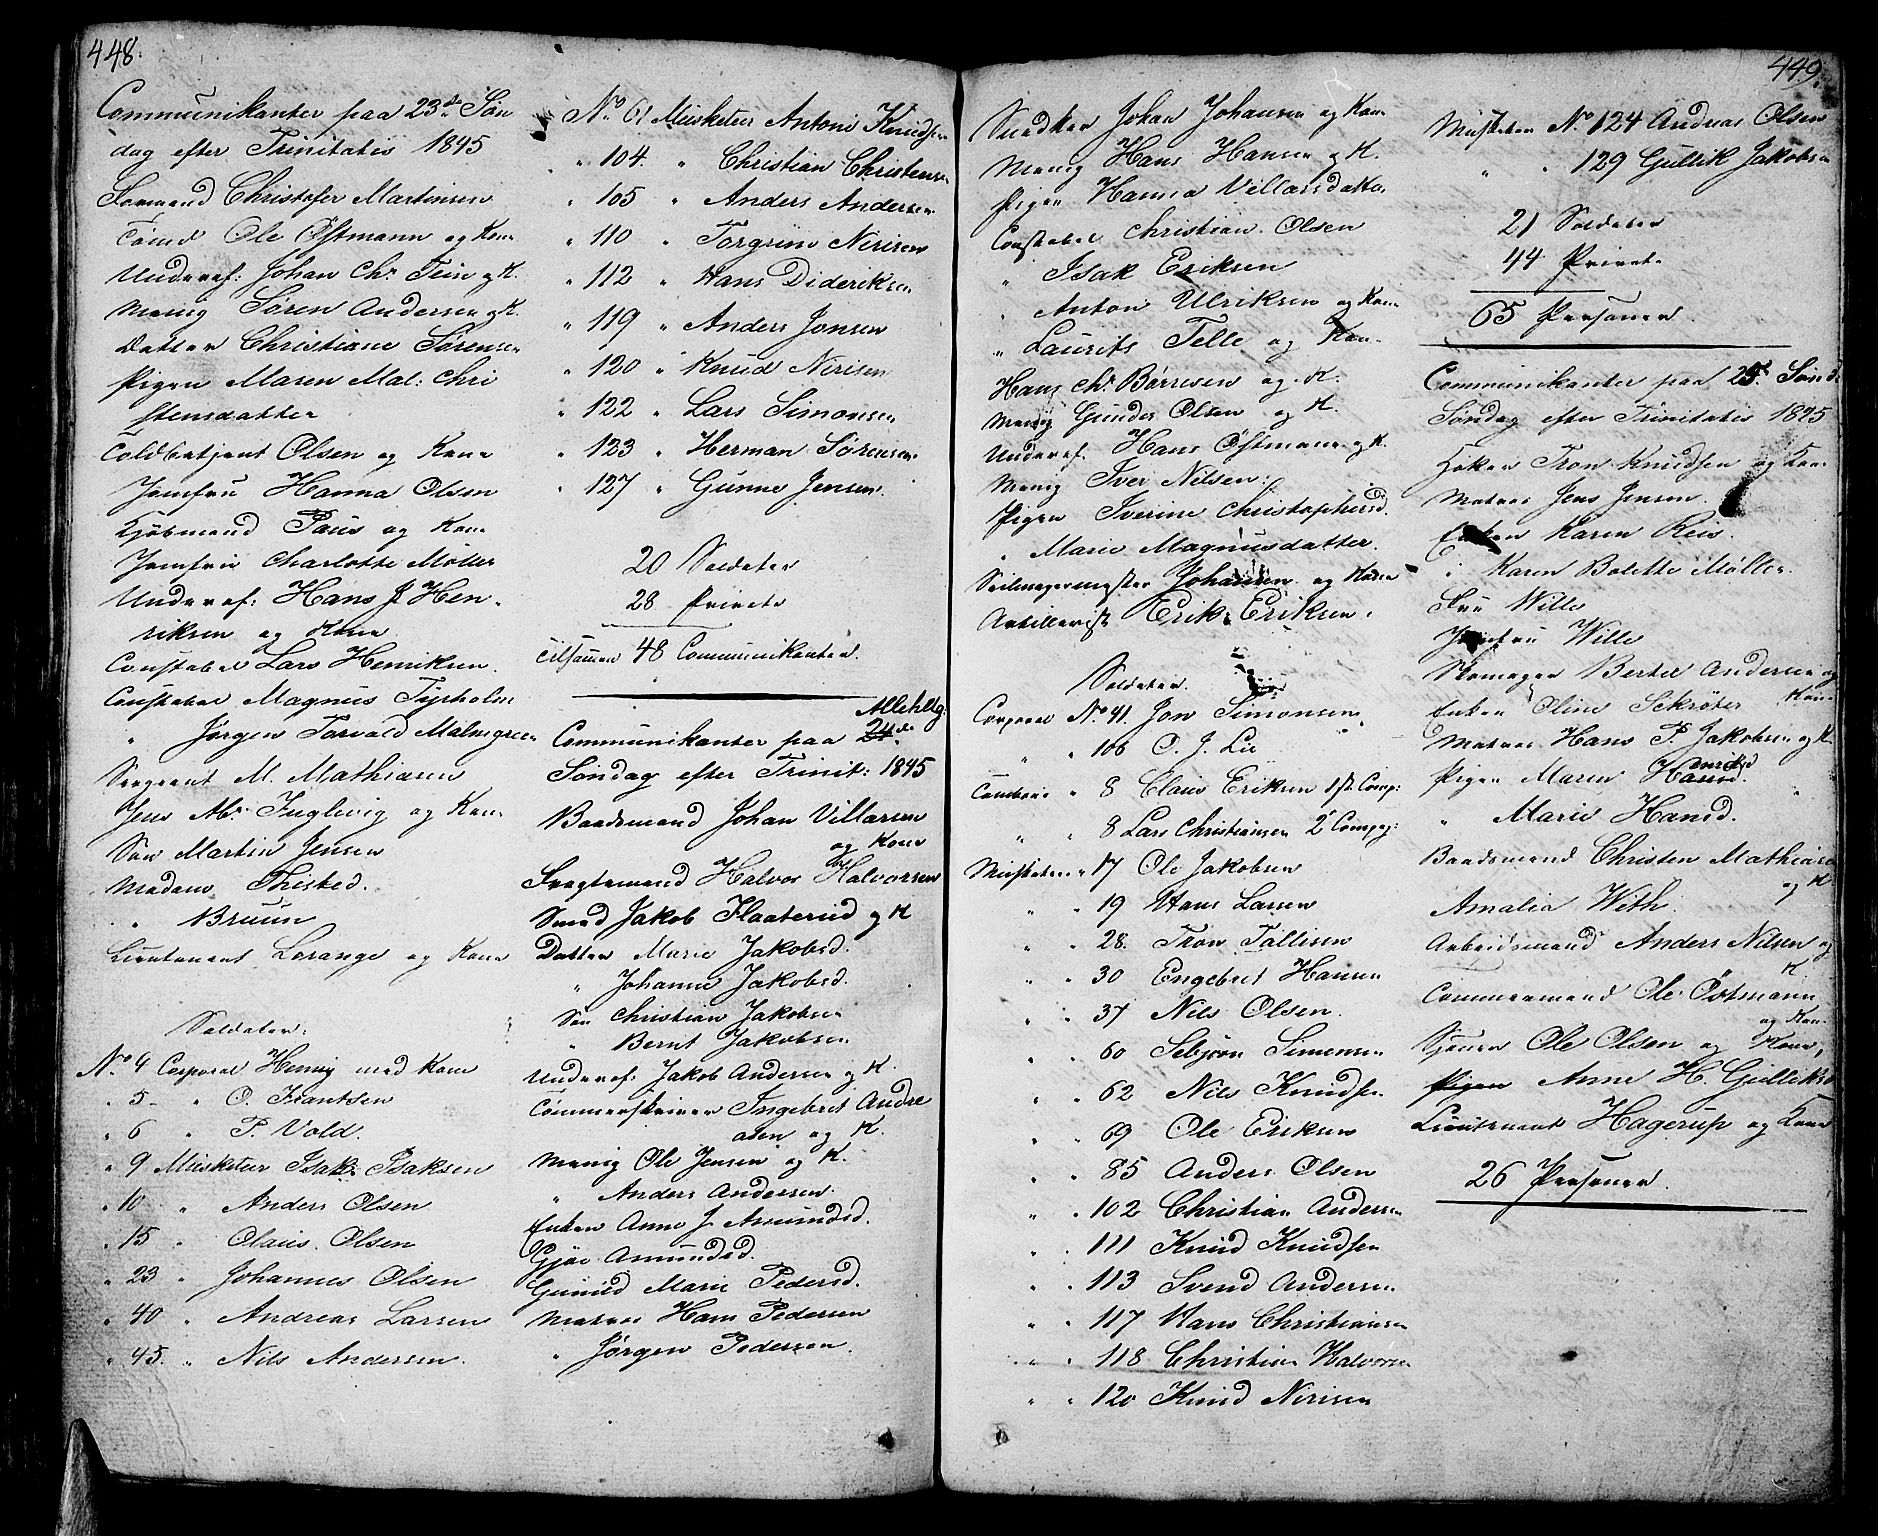 448.
Communikanter paa 23de Søn
dag efter Trinitatis 1845
Formand Christofer Martinsen
Tømd Ole Østmann og Kone
Underof: Johan Chr. Tein og K.
Menig Søren Andersen og K.
Datter Christiane Sørensen
Pigen Maren Mal: Chri
stensdatter
Toldbetjent Olsen og Kone
Jomfru Hanna Olsen
Kjøbmand Paus og Kone
Jomfru Charlotte Møller
Underof: Hans J Hen
riksen og Kone
Constabel Lars Henriksen.
Constabel Magnus Tyrholm
" Jørgen Torvald Malmgreen
Sergeant M. Mathiasen
Jens Ab. Juglevig og Kone
Søn Martin Jensen
Madam Thisted.
" Bruun
Lieutenant Lorange og Kone
Soldater:
No. 4 Corporal Hennig med Kone
" 5 " O. Frantsen
" 6 " P. Vold.
" 9 Musketeer Isak Isaksen
" 10 " Anders Olsen
" 15 " Olaus Olsen
" 23 " Johannes Olsen
" 40 " Andreas Larsen
" 45. " Nils Andersen.
No. 61 Musketeer Antoni Knudsen
" 104. " Christian Christensen
" 105 " Anders Andersen
" 110 " Torgrim Nirisen
" 112 " Hans Dideriksen
" 119 " Anders Jonsen
" 120 " Knud Nirisen
" 122 " Lars Simonsen
" 123 " Herman Sørensen
" 127 " Gunne Jensen.
20 Soldater
28 Private
tilsamen 48 Communikanter.
Allehlg:
Communikanter paa 24de
Søndag efter Trinit: 1845
Baadsmand Johan Villarsen
og Kone
Fragtemand Halvor Halvorsen
Smed Jakob Flaaterud og K
Datter Marie Jakobsd.
" Johanne Jakobsd.
Søn Christian Jakobsen
" Bernt Jakobsen
Underof: Jakob Andersen og K.
Tømmerskriver Ingebret Andre
asen og K.
Menig Ole Jensen og K.
" Anders Andersen.
Enken Anne J. Amundsd.
Gjøe Amundsd.
Gunild Marie Pedersd.
Matros Hans Pedersen
" Jørgen Pedersen.
449.
Snedker Johan Johansen og Kone
Menig Hans Hansen og K.
Pigen Hanna Villarsdatter
Constabel Christian Olsen
" Isak Eriksen
" Anton Ulriksen og Kone
" Laurits Telle og Kone.
Hans Chr. Børresen og K.
Menig Gunder Olsen og K.
Underof. Hans Østmann og K.
Menig Iver Nilsen:
Pigen Iverine Christophersd.
" Marie Magnusdatter.
Seilmagermester Johansen og Kone
Artillerist Erik Eriksen.
Soldater.
Corporal No. 41. Jon Simonsen
" " 106 O. J. Lie
Tambour " 8 Claus Eriksen 1st. Comp:
" " 8 Lars Christiansen 2 Compag:
Musketeer " 17 Ole Jakobsen
" " 19 Hans Larsen
" " 28. Tron Tollisen
" " 30 Engebret Hansen
" " 37 Nils Olsen.
" " 60 Sebjørn Simensen
" " 62 Nils Knudsen
" " 69 Ole Eriksen
" " 85 Anders Olsen
" " 102 Christian Andersen
" " 111 Knud Knudsen
" " 113 Svend Andersen
" " 117 Hans Christiansen
" " 118 Christian Halvorsen
" " 120 Knud Nirisen
Musketeer No. 124 Andreas Olsen
" " 129 Gullik Jakobsen
21 Soldater
44 Private
65 Personer
Communikanter paa 25. Sønd
Søndag efter Trinitatis 1845
Høker Tron Knudsen og Kone
Matros Jens Jensen.
Enken Karen Reis.
" Karen Bolette Møller.
Fru Wille
Jomfru Wille
Skomager Bertel Andersen og
Kone
Enken Oline Schrøter
Matros Hans P. Jakobsen og K
Pigen Maren Hansd.
" Marie Hansd.
Baadsmand Christen Mathiasen
og K
Amalia Weth.
Arbeidsmand Anders Nilsen og
K
Tømmermand Ole Østmann
og Kone
Sjouer Ole Olsen og Kone,
Pigen Anne H. Gulliksd
Lieutenant Hagerup og Kone
26 Personer.